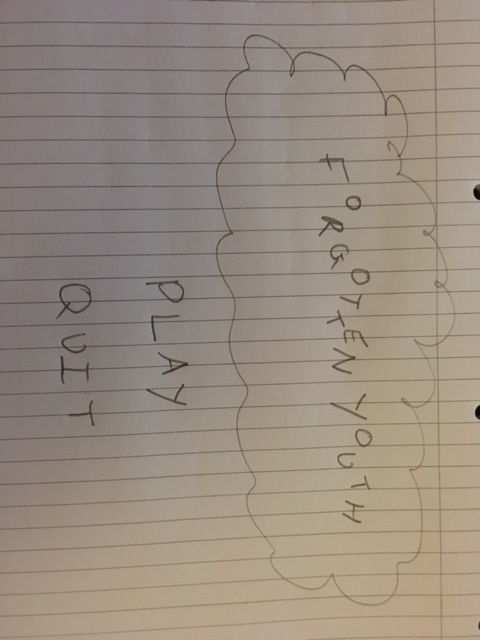 FORGOTTEN YOUTH
PLAY
QUIT